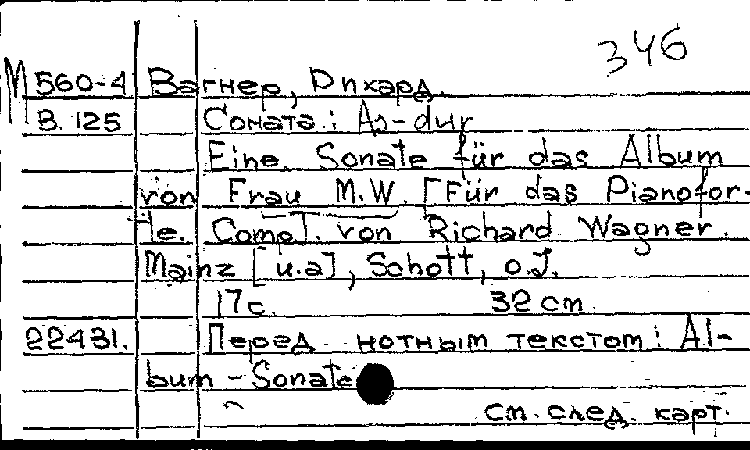 346
М 560-4 Вагнер, Рихард.
В. 125 Соната: As-dur
Eine Sonate für das Album
von Frau M.W. [Für das Pianofor-
te. Comp]. von Richard Wagner.
Mainz [u.a], Schott, o.J.
17 с. 32 cm.
22431. Перед нотным текстом: Al-
bum-Sonate
см. след. карт.